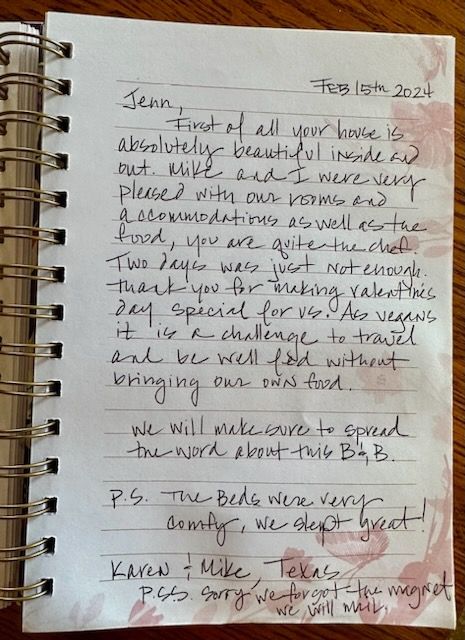 Feb 15th 2024
Jenn,
First of all your house is
absolutely beautiful inside and
out. Mike and I were very
pleased with our rooms and
accommodations as well as the
food, you are quite the chef.
Two days was just not enough.
Thank you for making valentine's
day special for us. As vegans
it is a challenge to travel
and be well fed without
bringing our own food.
We will make sure to spread
the word about this B & B.
P.S. The Beds were very
comfy, we slept great!
Karen & Mike, Texas
P.S.S. Sorry we forgot the magnet
we will mail.